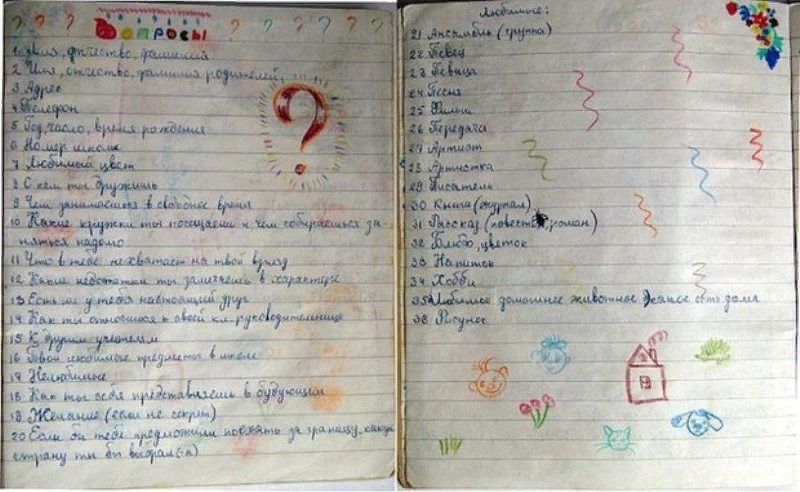 ? ? ? ? ? ? ?
Вопросы
1 Имя, отчество, фамилия
2 Имя, отчество, фамилия родителей
3 Адрес
4 Телефон
5 Год, число, время рождения
6 Номер школы
7 Любимый цвет
8 С кем ты дружишь
9 Чем занимаешься в свободное время
10 Какие кружки ты посещаешь и чем собираешься за
няться надолго
11 Что в тебе нехватает на твой взгляд
12 Какие недостатки ты замечаешь в характере
13 Есть ли у тебя настоящий друг
14 Как ты относишся к своей кл. руководительнице
15 К другим учителям
16 Твои любимые предметы в школе
17 Нелюбимые
18 Как ты себя представляешь в будующем
19 Желание (если не секрет)
20 Если бы тебе предложили поехать за границу, какую
страну ты бы выбрал(-а)
?
Любимые:
21 Ансамбль (группа)
22 Певец
23 Певица
24 Песня
25 Фильм
26 Передача
27 Артист
28 Артистка
29 Писатель
30 Книга (журнал)
31 Рассказ (повесть, роман)
32 Блюдо, цветок
33 Напиток
34 Хобби
35 Любимое домашнее животное какое есть дома
36 Рисунок